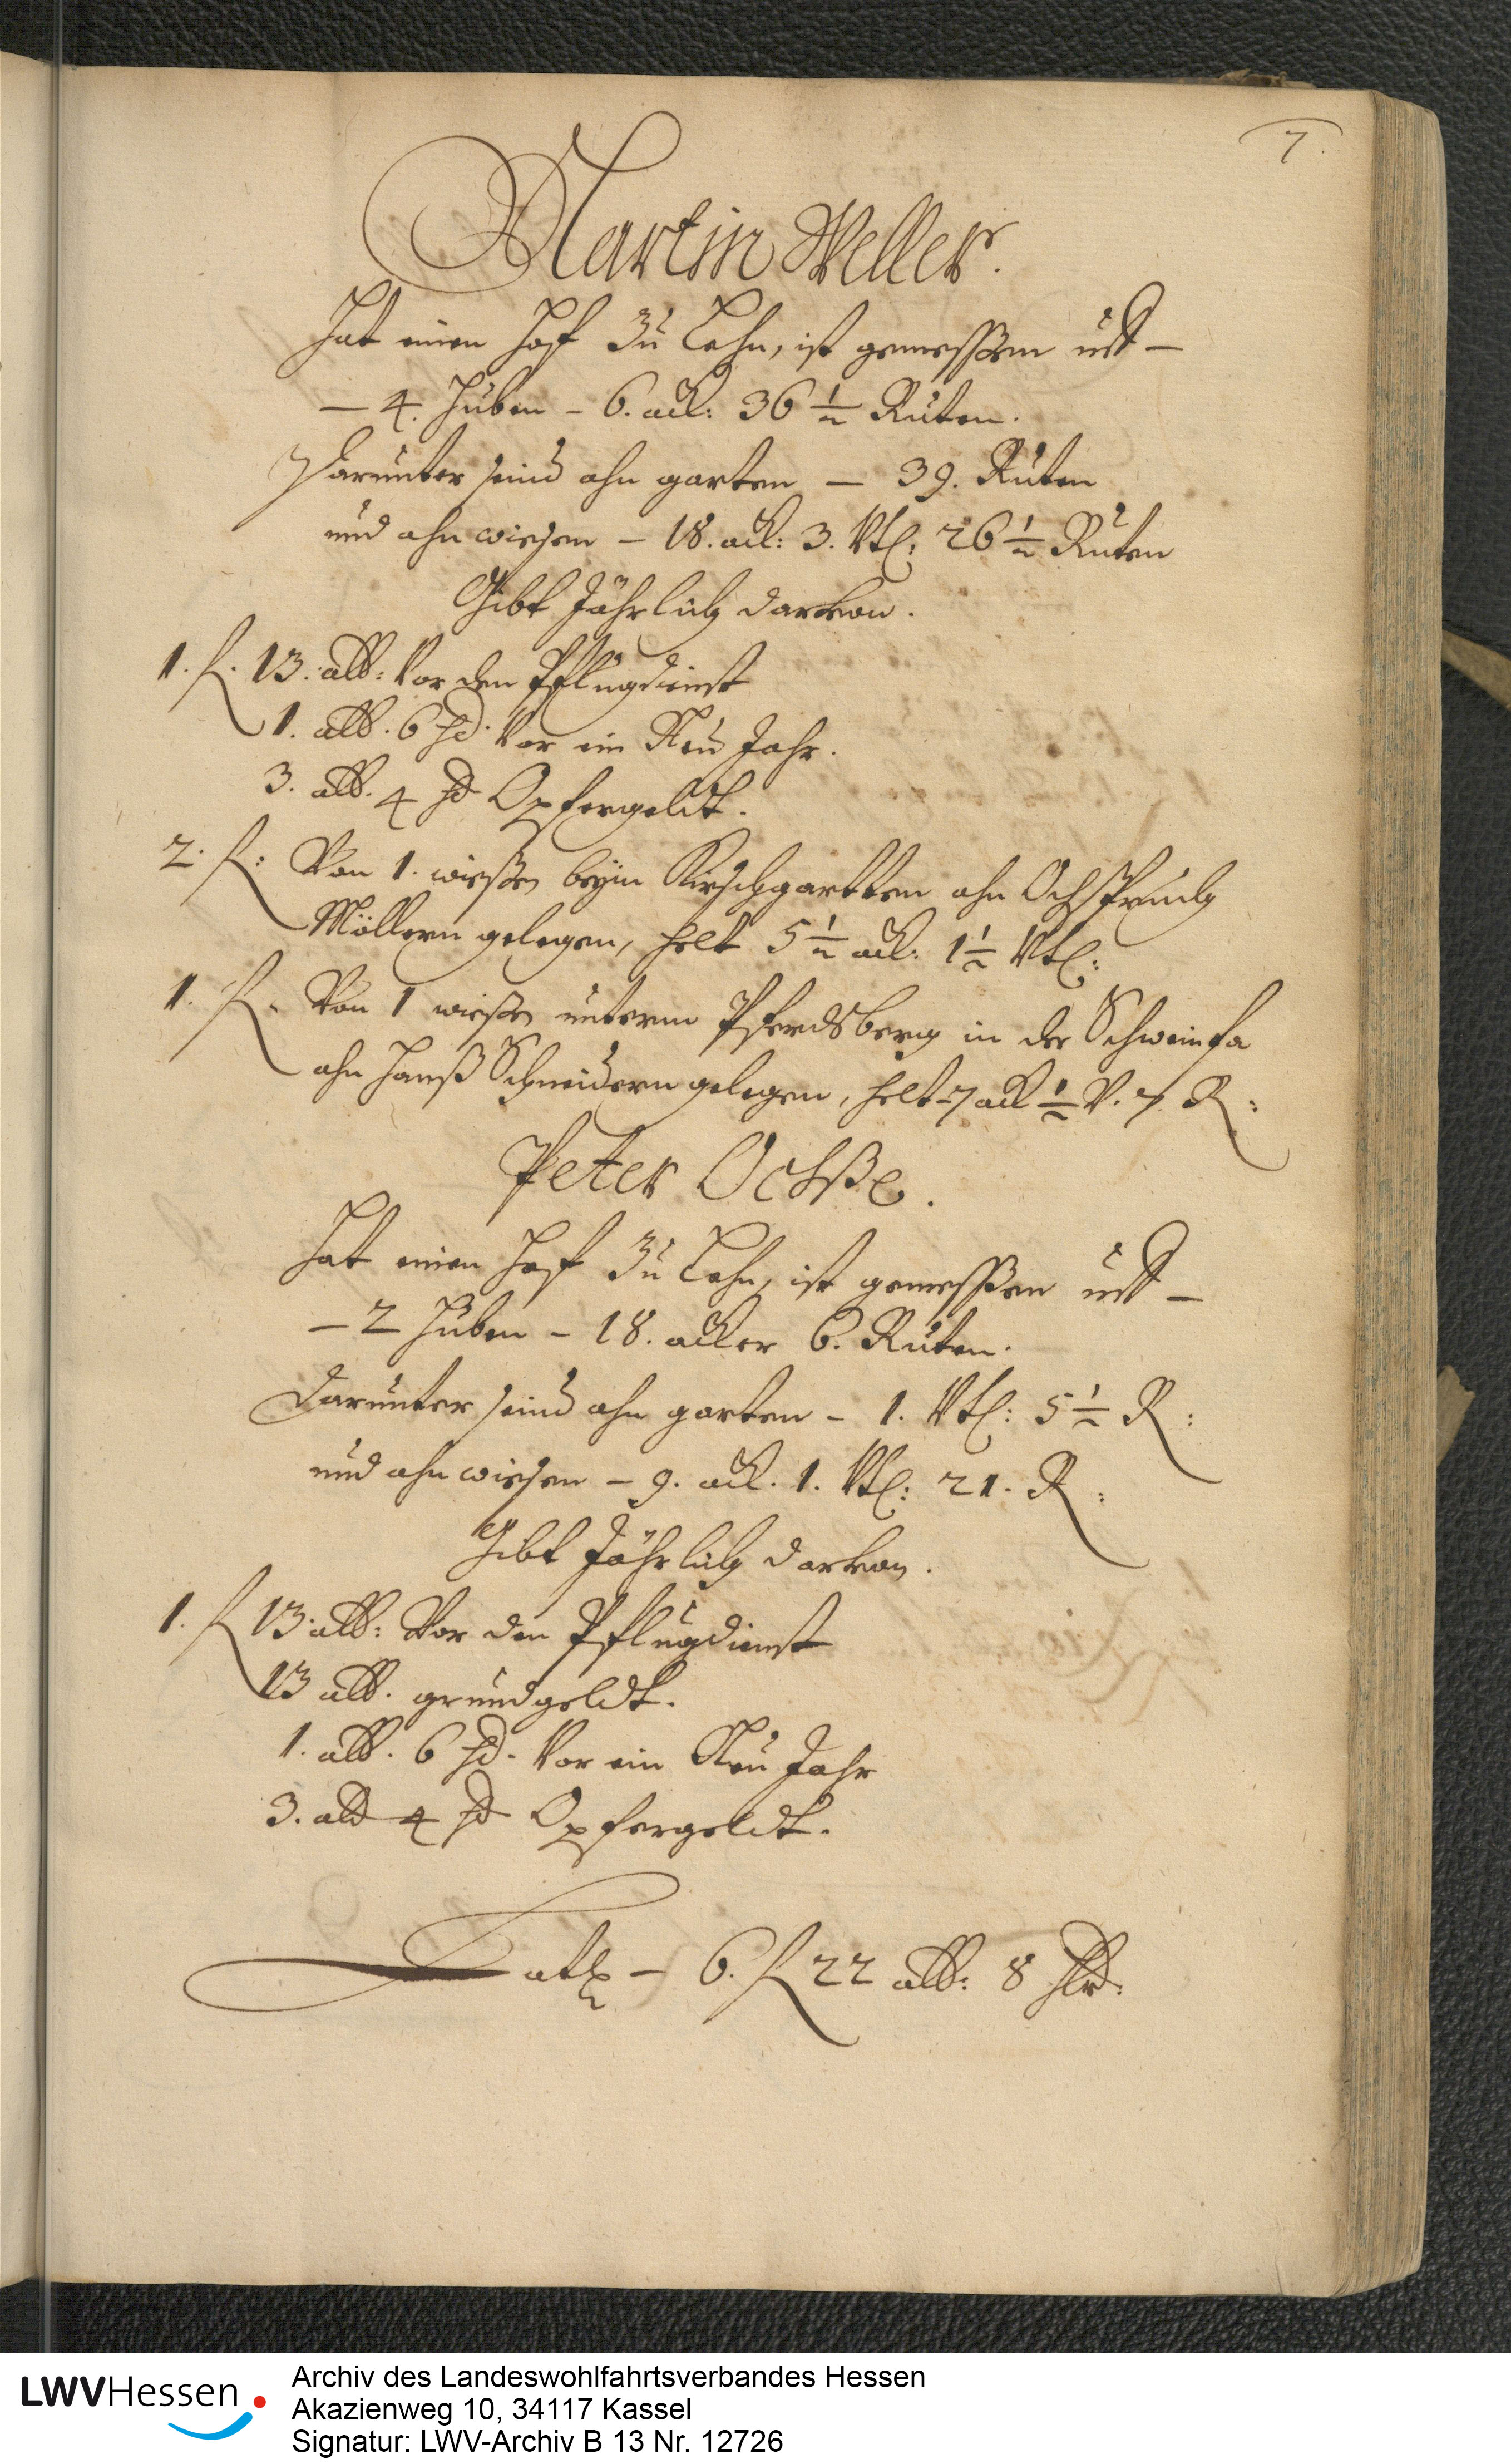 7.
Martin Weller.
Hat einen Hof Zu Lehn, ist gemessen uff –
– 4. Huben – 6. ack: 36 1/2 Ruten.
Darunter seind ahn garten – 39. Ruten
und ahn wiesen – 18. ack: 3. Vtl: 26 1/2 Ruten
Gibt Jährlich darvon.
1. fl. 13. alb: Vor den Pflugdienst
1. alb. 6 hl. Vor ein Neu Jahr.
3. alb. 4 hl Opfergeldt.
2. fl: Von 1. wießen beym Kirschgartten ahn
Möllern gelegen, helt 5 1/2 ack: 1 1/2 Vtl:
1. fl. Von 1 wießen unterm Pferdsberg in der
ahn Hanß Schneidern gelegen, helt 7 ack 1/2 V. 7. R:
Peter Ochße.
Hat einen Hof Zu Lehn, ist gemessen uff –
– 2 Huben – 18. acker 6. Ruten.
Darunter seind ahn garten – 1. Vtl: 5 1/2 R:
und ahn wiesen – 9. ack. 1. Vtl: 21. R:
Gibt Jährlich darvon.
1. fl 13. alb: Vor den Pflugdienst
13 alb. grundgeldt.
1. alb. 6 hl. Vor ein Neu Jahr
3. alb 4 hl Opfergeldt.
Lat – 6. fl 22 alb: 8 hlr:
LWVHessen
Archiv des Landeswohlfahrtsverbandes Hessen
Akazienweg 10, 34117 Kassel
Signatur: LWV-Archiv B 13 Nr. 12726